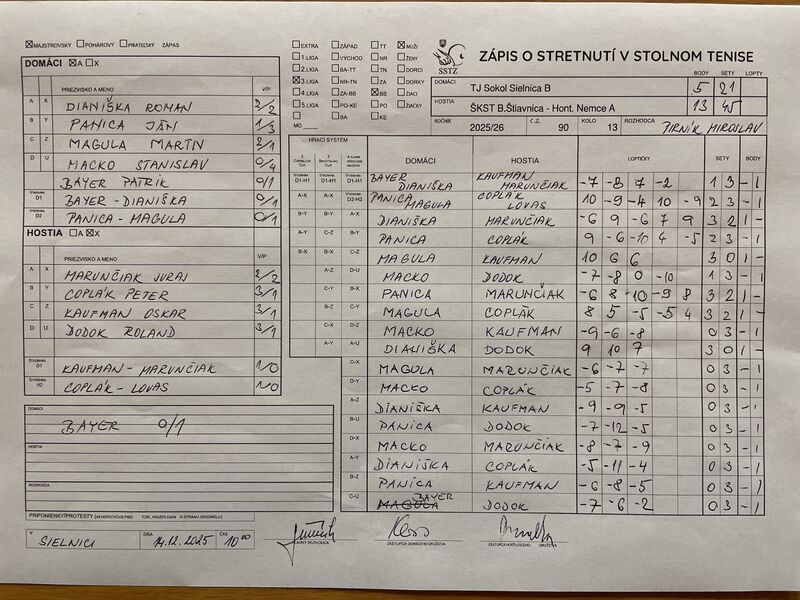 ☒ MAJSTROVSKÝ ☐ POHÁROVÝ ☐ PRIATEĽSKÝ ZÁPAS
DOMÁCI ☒ A ☐ X
PRIEZVISKO A MENO V/P
A X DIANIŠKA ROMAN 2/2
B Y PANICA JÁN 1/3
C Z MAGULA MARTIN 2/1
D U MACKO STANISLAV 0/4
BAYER PATRIK 0/1
ŠTVORHRA D1 BAYER - DIANIŠKA 0/1
D2 PANICA - MAGULA 0/1
HOSTIA ☐ A ☒ X
PRIEZVISKO A MENO V/P
A X MARUNČIAK JURAJ 2/2
B Y COPLÁK PETER 3/1
C Z KAUFMAN OSKAR 3/1
D U DODOK ROLAND 3/1
ŠTVORHRA D1 KAUFMAN - MARUNČIAK 1/0
H2 COPLÁK - LOVAS 1/0
DOMÁCI
BAYER 0/1
HOSTIA
ROZHODCA
PRIPOMIENKY/PROTESTY
V SIELNICI DŇA 14.12.2025 ČAS 10 00
☐ EXTRA ☐ ZÁPAD ☐ TT ☒ MUŽI
☐ 1.LIGA ☐ VÝCHOD ☐ NR ☐ ŽENY
☐ 2.LIGA ☐ BA-TT ☐ TN ☐ DORCI
☒ 3.LIGA ☐ NR-TN ☐ ZA ☐ DORKY
☐ 4.LIGA ☐ ZA-BB ☒ BB ☐ ŽIACI
☐ 5.LIGA ☐ PO-KE ☐ PO ☐ ŽIAČKY
☐ ☐ BA ☐ KE
MO
SSTZ
ZÁPIS O STRETNUTÍ V STOLNOM TENISE
BODY SETY LOPTY
DOMÁCI TJ Sokol Sielnica B 5 21
HOSTIA ŠKST B.Štiavnica - Hont. Nemce A 13 45
ROČNÍK 2025/26 Č.Z. 90 KOLO 13 ROZHODCA JIRNÍK MIROSLAV
HRACÍ SYSTÉM
DOMÁCI HOSTIA LOPTIČKY SETY BODY
D1-H1 D1-H1 D1-H1 BAYER DIANIŠKA KAUFMAN MARUNČIAK -7 -8 7 -2 1 3 - 1
A-X A-X D2-H2 PANICA MAGULA COPLÁK LOVAS 10 -9 -4 10 -9 2 3 - 1
B-Y B-Y A-X DIANIŠKA MARUNČIAK -6 9 -6 7 9 3 2 1 -
A-Y C-Z B-Y PANICA COPLÁK 9 -6 -10 4 -5 2 3 - 1
B-X B-X C-Z MAGULA KAUFMAN 10 6 6 3 0 1 -
A-Z D-U MACKO DODOK -7 -8 0 -10 1 3 - 1
C-Y B-X PANICA MARUNČIAK -6 8 -10 -9 8 3 2 1 -
B-Z C-Y MAGULA COPLÁK 8 5 -5 -5 4 3 2 1 -
C-X D-Z MACKO KAUFMAN -9 -6 -8 0 3 - 1
A-Y A-U DIANIŠKA DODOK 9 10 7 3 0 1 -
C-X MAGULA MARUNČIAK -6 -7 -7 0 3 - 1
D-Y MACKO COPLÁK -5 -7 -8 0 3 - 1
A-Z DIANIŠKA KAUFMAN -9 -9 -5 0 3 - 1
B-U PANICA DODOK -7 -12 -5 0 3 - 1
D-X MACKO MARUNČIAK -8 -7 -9 0 3 - 1
A-Y DIANIŠKA COPLÁK -5 -11 -4 0 3 - 1
B-Z PANICA KAUFMAN -6 -8 -5 0 3 - 1
C-U MAGULA BAYER DODOK -7 -6 -2 0 3 - 1
HLAVNÝ ROZHODCA ZÁSTUPCA DOMÁCEHO DRUŽSTVA ZÁSTUPCA HOSŤUJÚCEHO DRUŽSTVA